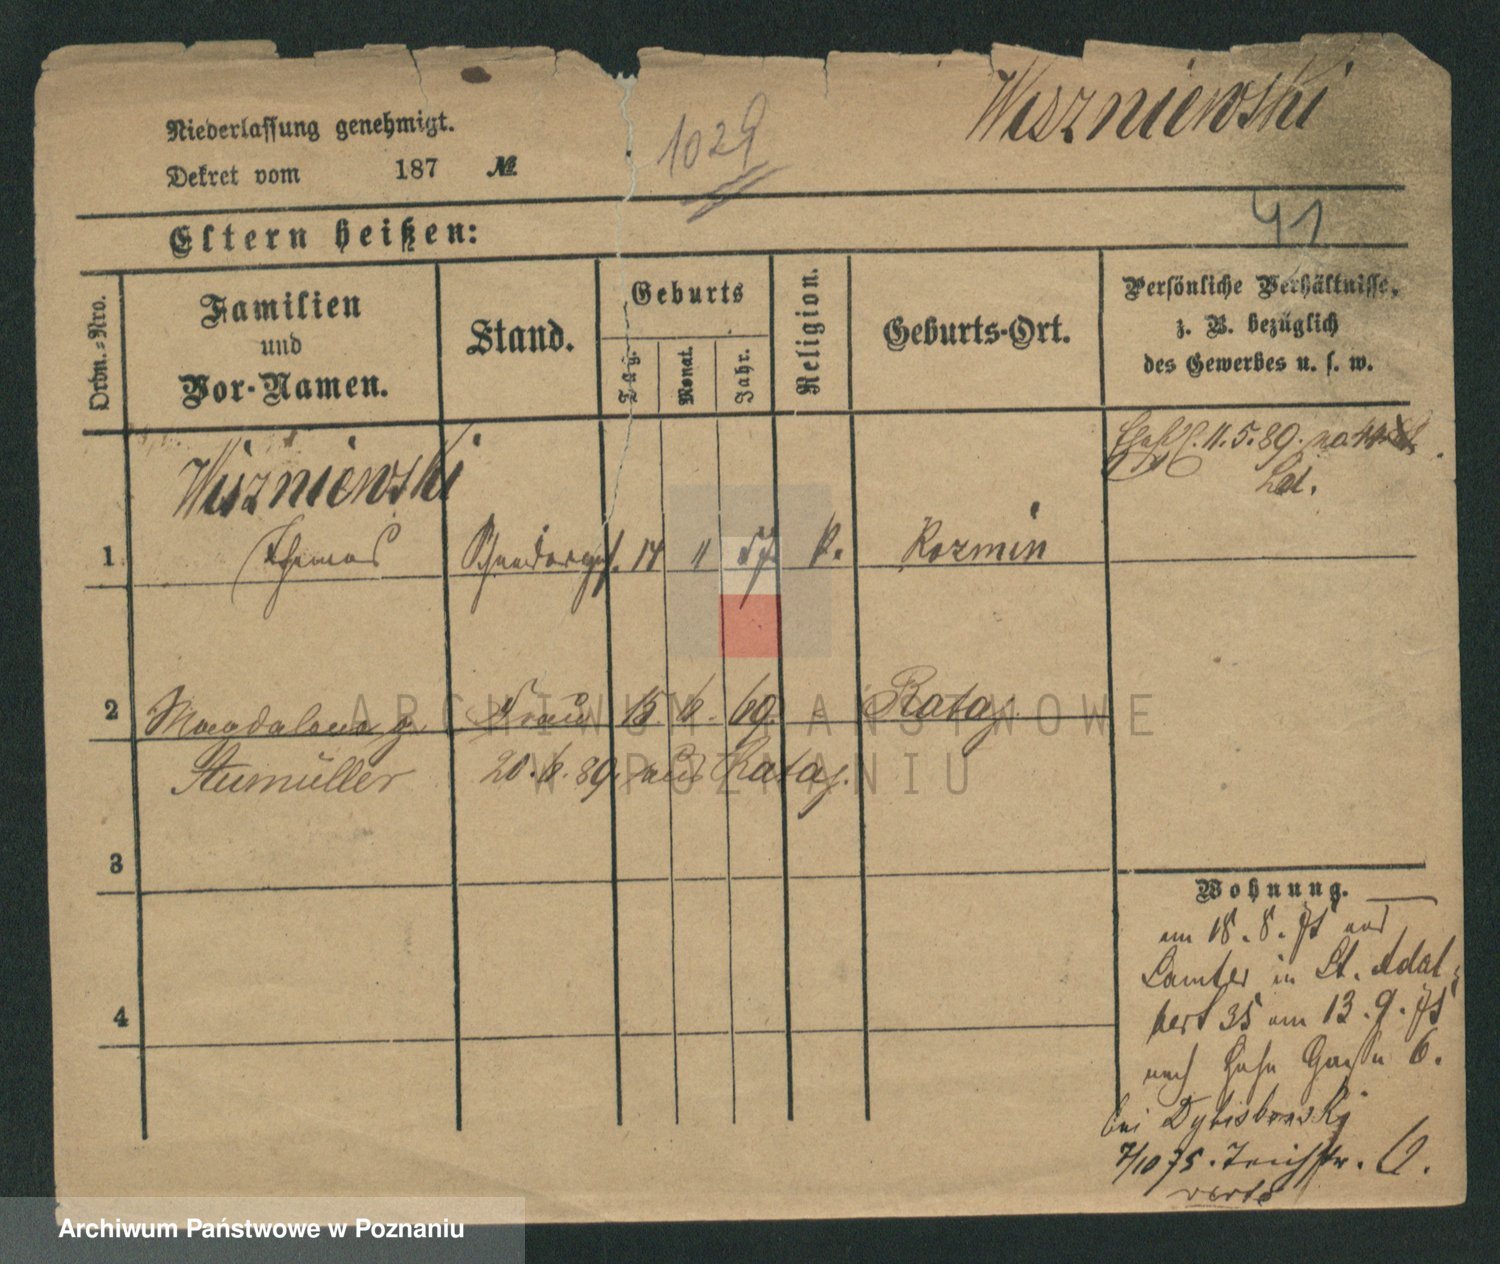 Wiszniewski
Niederlassung genehmigt.
Dekret vom 187 №
1029
41
Eltern heißen:
Ordn.-Nro.
Familien
und
Vor-Namen.
Stand.
Geburts
Tag.
Monat.
Jahr.
Religion.
Geburts-Ort.
Persönliche Verhältnisse,
z. B. bezüglich
des Gewerbes u. s. w.
11.5.89.
Wiszniewski
1 Thomas Schneiderges. 14 11 57 k. Kozmin
2 Magdalena g. Frau 15. 6. 69. Rataj
Stumüller 20.6.89. aus Rataj.
3
4
Wohnung.
am 18.8.75 aus
Samter in St. Adal-
bert 35 am 13.9.75
nach Hohe Gasse 6.
bei
7/10 75. Teichstr. 6.
verte
ARCHIWUM PAŃSTWOWE
W POZNANIU
Archiwum Państwowe w Poznaniu